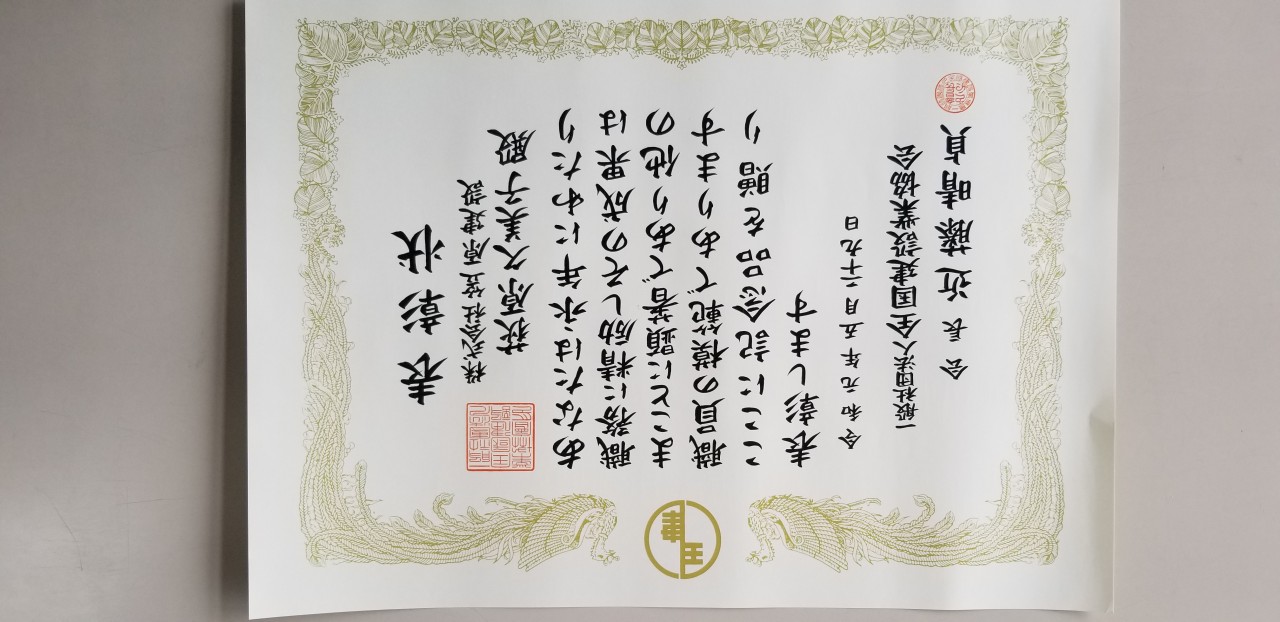 表彰状
株式会社笠原建設
荻原久美子殿
あなたは永年にわたり
職務に精励しその成果は
まことに顕著であり他の
職員の模範であります
ここに記念品を贈り
表彰します
令和元年五月二十九日
一般社団法人全国建設業協会
会長 近藤晴貞